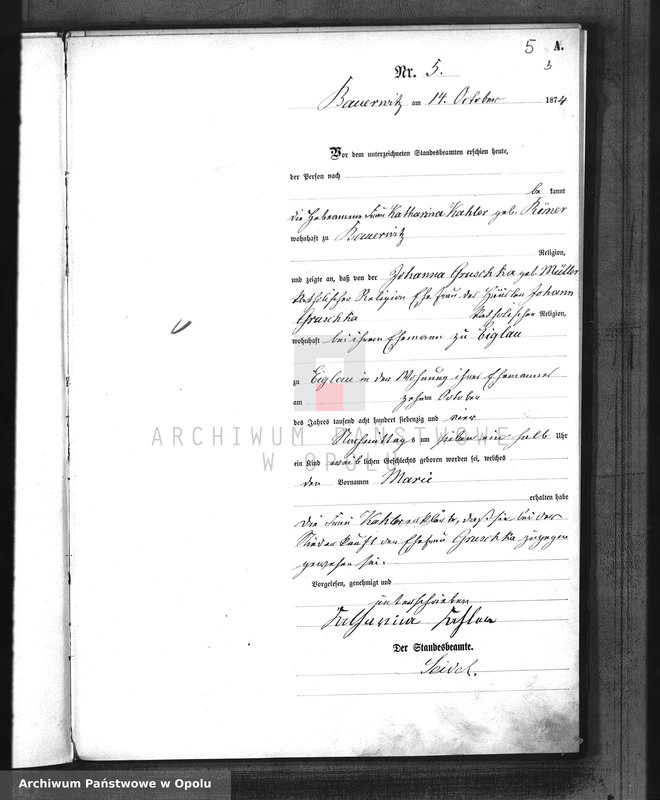 5 A.
5
Nr. 5.
Bauerwitz am 14. October 1874
Vor dem unterzeichneten Standesbeamten erschien heute,
der Person nach
be kannt
die Hebeamme Frau Katharina Kahler geb. Römer
wohnhaft zu Bauerwitz
Religion,
und zeigte an, daß von der Johanna Gruschka geb. Müller
katholischer Religion Ehefrau des Häusler Johann
Gruschka katholischer Religion,
wohnhaft bei ihrem Ehemann zu Eiglau
zu Eiglau in der Wohnung ihres Ehemannes
am zehnten October
des Jahres tausend acht hundert siebenzig und vier
Nachmittags um sieben ein halb Uhr
ein Kind weiblichen Geschlechts geboren worden sei, welches
den Vornamen Marie
erhalten habe
Die Frau Kahler erklärte, daß sie bei der
Niederkunft der Ehefrau Gruschka zugegen
gewesen sei.
Vorgelesen, genehmigt und
unterschrieben
Katharina Kahler
Der Standesbeamte.
Seidel.
ARCHIWUM PAŃSTWOWE
W OPOLU
Archiwum Państwowe w Opolu